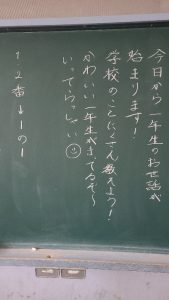 今日から一年生のお世話が
始まります！
学校のことたくさん教えよう！
かわいい一年生がまってるぞ〜
いってらっしゃい☺
1、2番→1の1